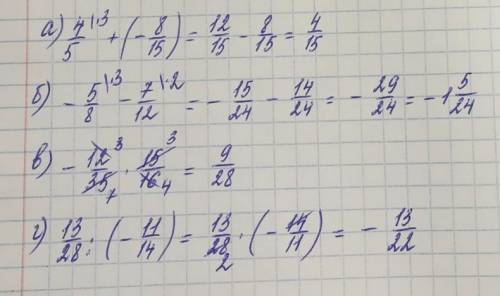 а) 4/5 \·3 + (- 8/15) = 12/15 - 8/15 = 4/15
б) - 5/8 \·3 - 7/12 \·2 = - 15/24 - 14/24 = - 29/24 = - 1 5/24
в) - 12/35 · 15/16 = 9/28
г) 13/28 : (- 11/14) = 13/28 · (- 14/11) = - 13/22